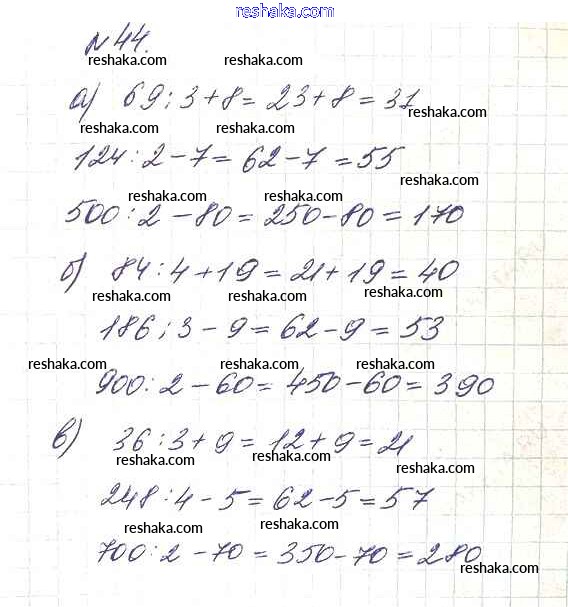 reshaka.com
№44.
reshaka.com reshaka.com
а) 69:3+8=23+8=31
reshaka.com
reshaka.com reshaka.com
124:2-7=62-7=55
reshaka.com
reshaka.com reshaka.com
500:2-80=250-80=170
б) 84:4+19=21+19=40
reshaka.com reshaka.com reshaka.com
186:3-9=62-9=53
reshaka.com reshaka.com reshaka.com
900:2-60=450-60=390
в) 36:3+9=12+9=21
reshaka.com reshaka.com reshaka.com
248:4-5=62-5=57
reshaka.com reshaka.com
700:2-70=350-70=280
reshaka.com